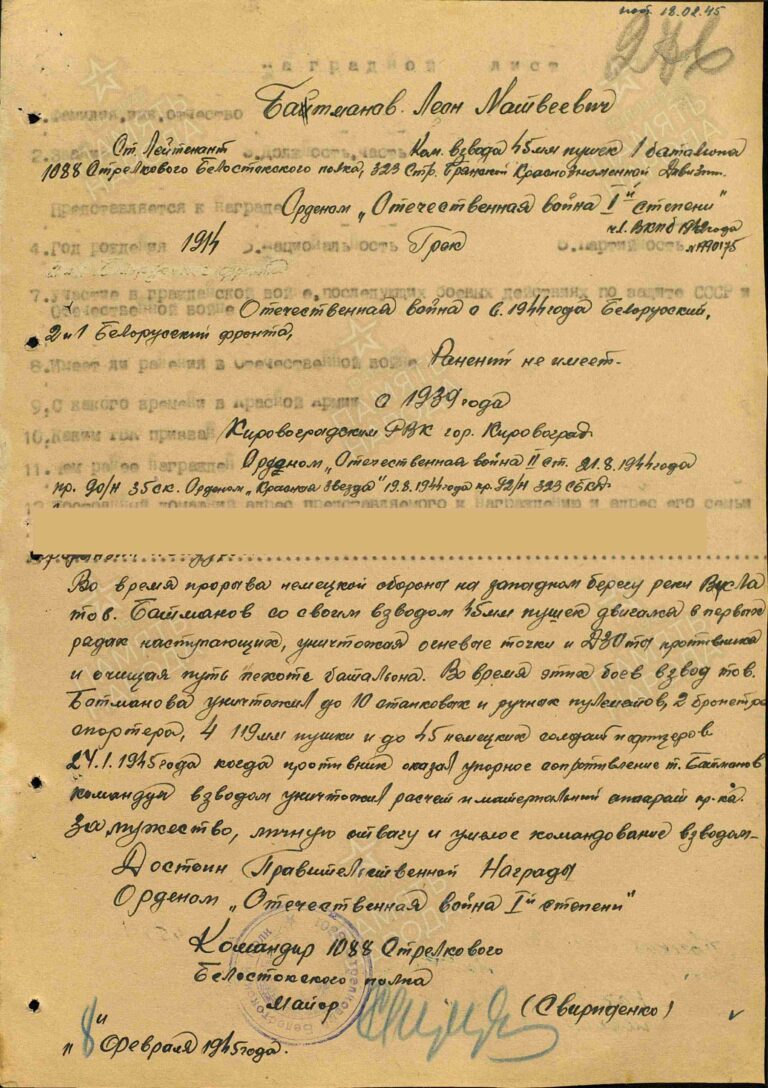 пот. 18.02.45
276
Наградной лист
1. Фамилия, имя, отчество Батманов Леон Матвеевич
2. Звание Ст. Лейтенант 3. Должность, часть Ком. взвода 45 мм пушек 1 баталиона
1088 Стрелкового Белостокского полка, 323 Стр. Брянской Краснознаменной Дивизии.
Представляется к награде Орденом „Отечественная война I й степени"
чл. ВКПб 1942 года
4. Год рождения 1914 5. Национальность Грек 6. Партийность №
7. Участие в гражданской войне, последующих боевых действиях по защите СССР и
Отечественной войне Отечественная война с 6. 1944 года Белорусский,
2 и 1 Белорусский фронта,
8. Имеет ли ранения в Отечественной войне Ранений не имеет.
9. С какого времени в Красной Армии с 1939 года
10. Каким РВК призван Кировоградским РВК гор. Кировоград.
11. Чем ранее награжден Орденом „Отечественная война II ст. 21.8.1944 года
пр. 90/н 35 ск. Орденом „Красная Звезда" 19.8.1944 года пр. 92/н 323 СБКД
12. Постоянный домашний адрес представляемого к награждению и адрес его семьи
Во время прорыва немецкой обороны на западном берегу реки Висла
тов. Батманов со своим взводом 45 мм пушек двигался в первых
рядах наступающих, уничтожая огневые точки и ДЗОты противника
и очищая путь пехоте батальона. Во время этих боев взвод тов.
Батманова уничтожил до 10 станковых и ручных пулеметов, 2 бронетра
спортера, 4 119 мм пушки и до 45 немецких солдат и офицеров.
24.1.1945 года когда противник оказал упорное сопротивление т. Батманов
командуя взводом уничтожил расчет и материальный аппарат пр-ка.
За мужество, личную отвагу и умелое командование взводом—
Достоин Правительственной Награды
Орденом „Отечественная война I й степени"
Командир 1088 Стрелкового
Белостокского полка
Майор (Свириденко)
„8" Февраля 1945 года.